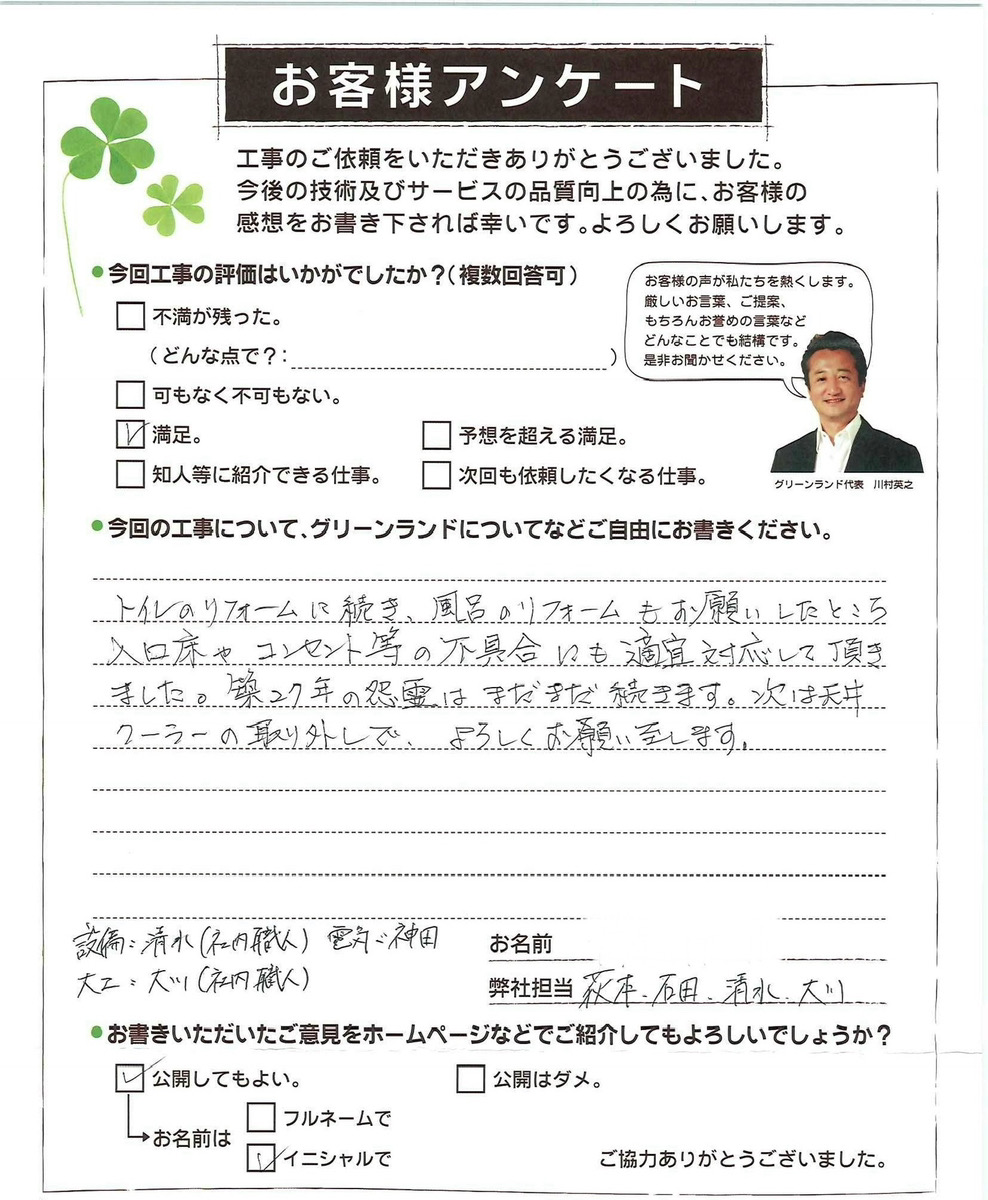 お客様アンケート
工事のご依頼をいただきありがとうございました。
今後の技術及びサービスの品質向上の為に、お客様の
感想をお書き下されば幸いです。よろしくお願いします。
●今回工事の評価はいかがでしたか？(複数回答可)
不満が残った。
(どんな点で？: )
可もなく不可もない。
満足。
予想を超える満足。
知人等に紹介できる仕事。
次回も依頼したくなる仕事。
お客様の声が私たちを熱くします。
厳しいお言葉、ご提案、
もちろんお誉めの言葉など
どんなことでも結構です。
是非お聞かせください。
グリーンランド代表 川村英之
●今回の工事について、グリーンランドについてなどご自由にお書きください。
トイレのリフォームに続き、風呂のリフォームもお願いしたところ
入口床やコンセント等の不具合にも適宜対応して頂き
ました。築27年の怨霊はまだまだ続きます。次は天井
クーラーの取り外しで、よろしくお願い至します。
設備：清水(社内職人) 電気：神田
大工：大川(社内職人)
お名前
弊社担当 萩本、石田、清水、大川
●お書きいただいたご意見をホームページなどでご紹介してもよろしいでしょうか？
公開してもよい。
公開はダメ。
お名前は
フルネームで
イニシャルで
ご協力ありがとうございました。